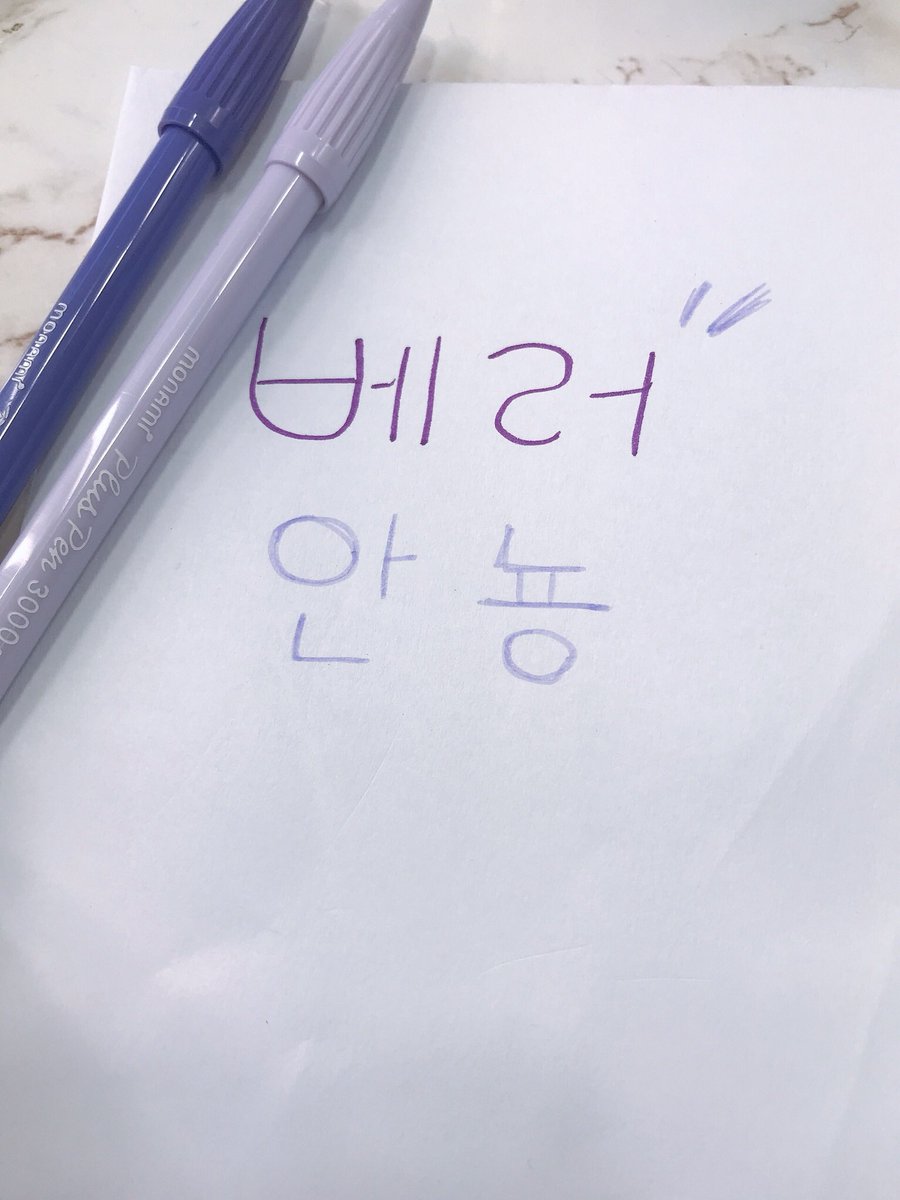 monami
monami Plus Pen 3000
베러"
안뇽